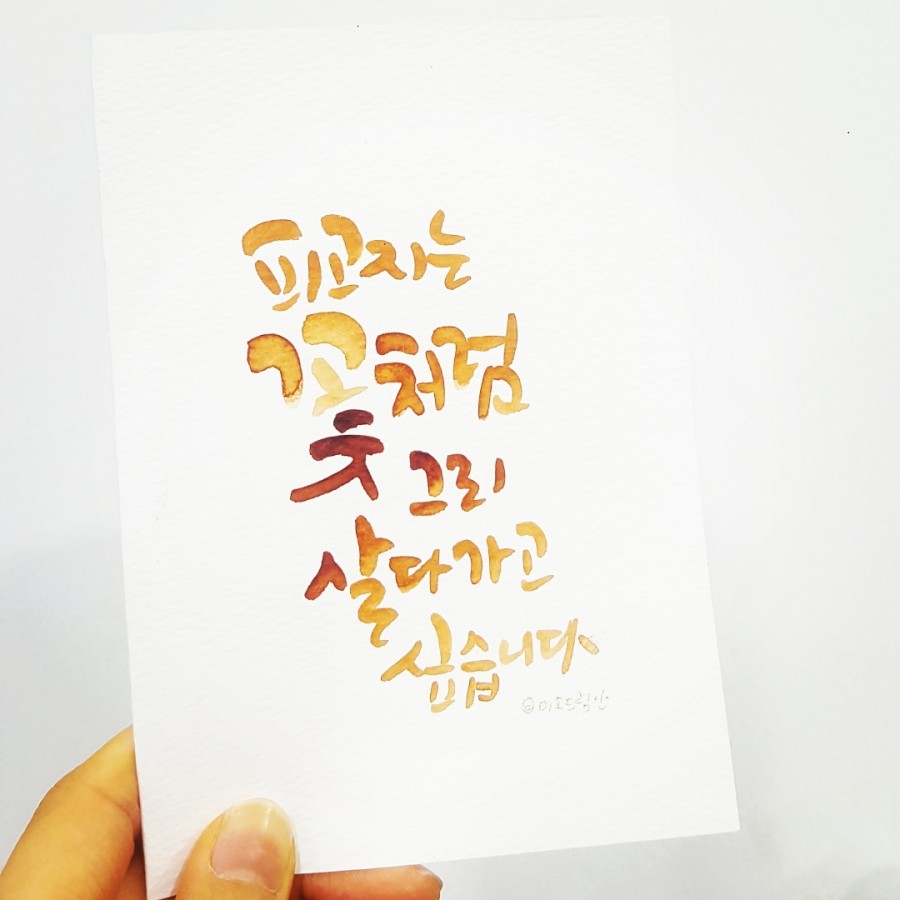 피고지는
꽃처럼
그리
살다가고
싶습니다.